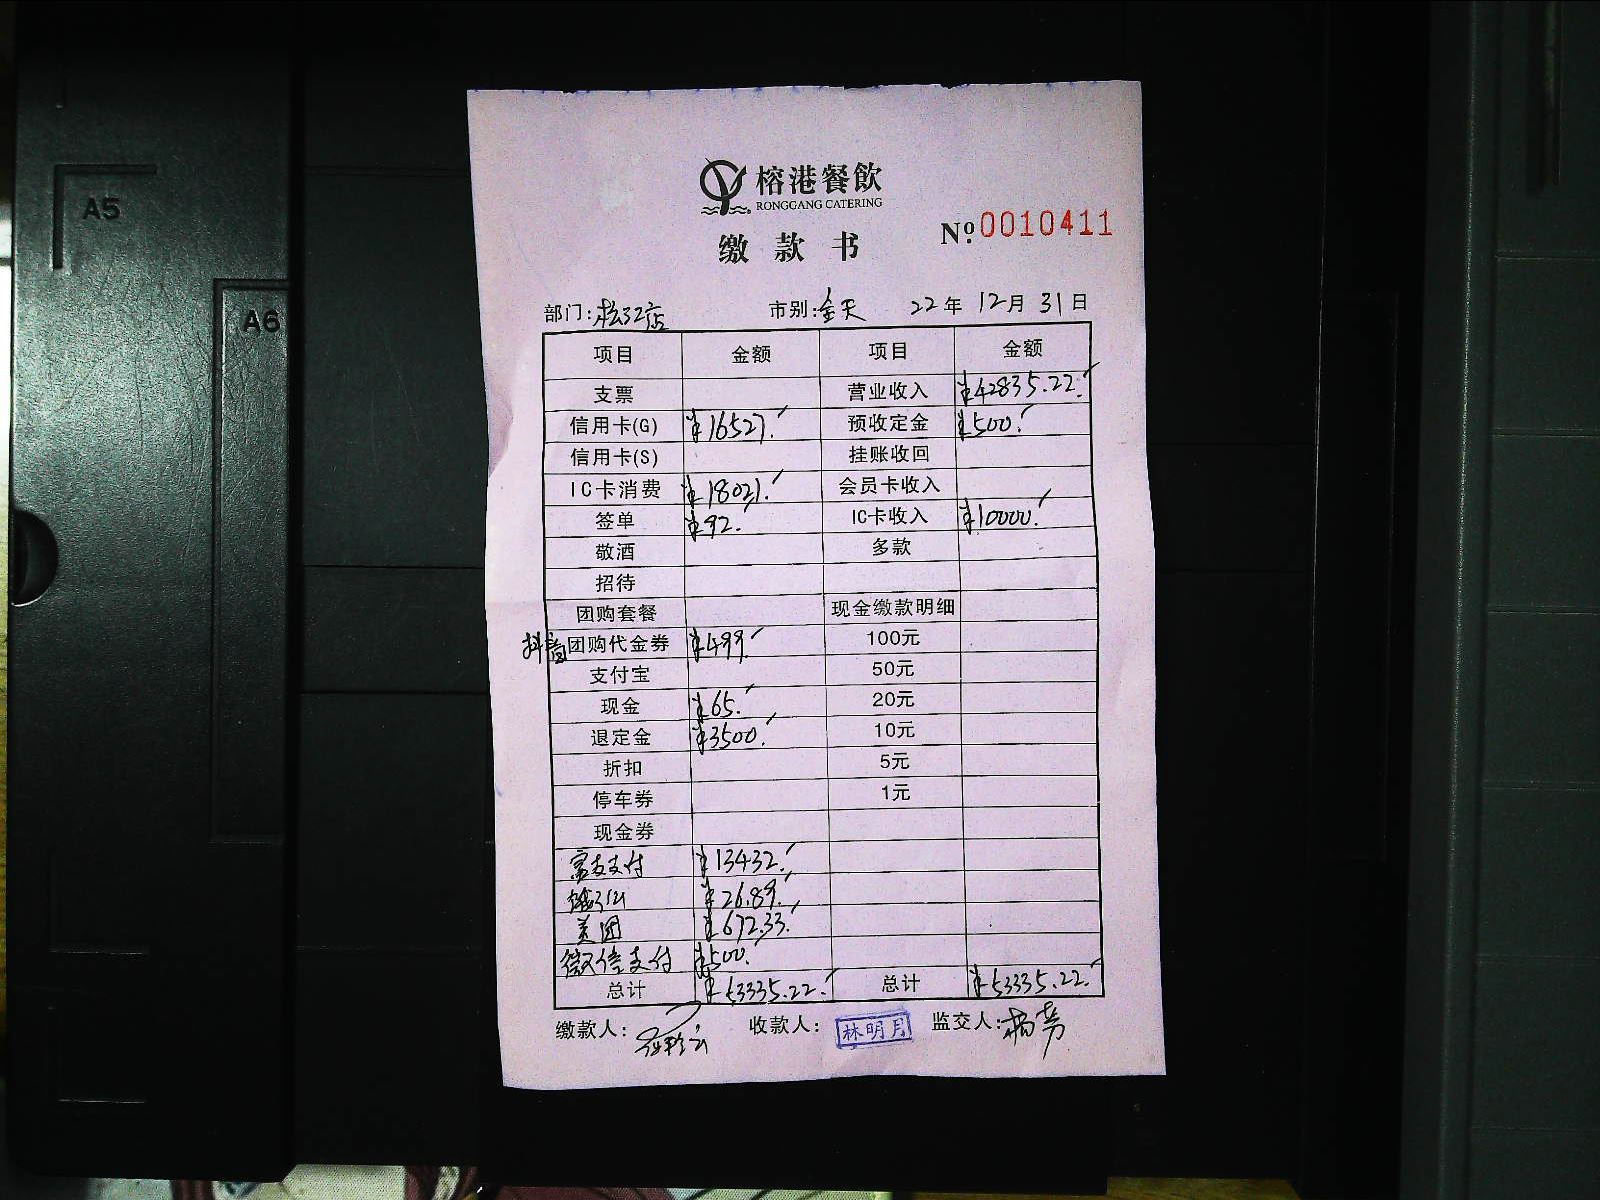 A5
A6
榕港餐飲
RONGGANG CATERING
缴款书
№ 0010411
部门:松江店 市别:全天 22年12月31日
项目 金额 项目 金额
支票 营业收入 ¥42835.22
信用卡(G) ¥16527. 预收定金 ¥500.
信用卡(S) 挂账收回
IC卡消费 ¥18021. 会员卡收入
签单 ¥92. IC卡收入 ¥10000.
敬酒 多款
招待
团购套餐 现金缴款明细
抖音团购代金券 ¥499. 100元
支付宝 50元
现金 ¥65. 20元
退定金 ¥3500. 10元
折扣 5元
停车券 1元
现金券
富友支付 ¥13432.
¥26.89.
美团 ¥672.33.
微信支付 ¥500.
总计 ¥53335.22. 总计 ¥53335.22.
缴款人: 收款人: 林明月 监交人: